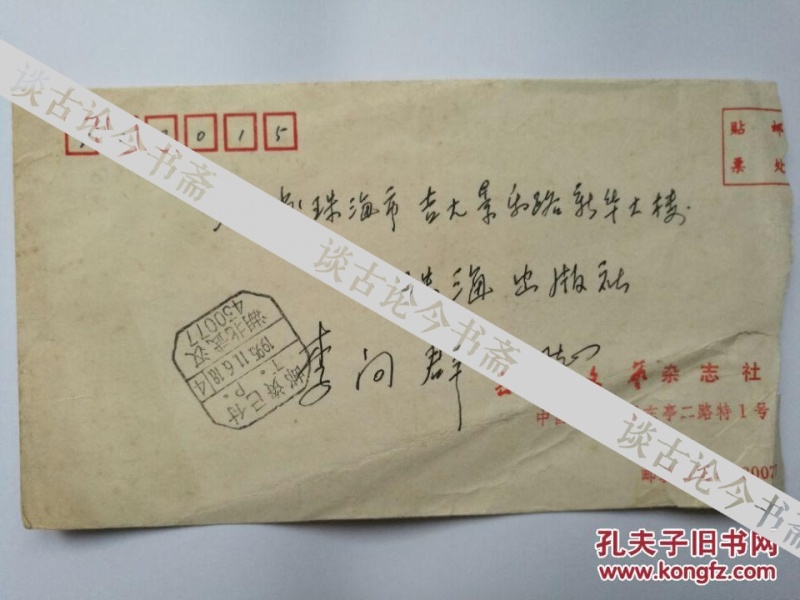 谈古论今书斋
0 1 5
贴 邮
票 处
珠海市吉大景乐路新华大楼
海出版社
李向群
湖北武汉
430077
1995.11.6.18
T.P.
邮资已付
4
艺杂志社
东亭二路特1号
谈古论今书斋
谈古论今书斋
孔夫子旧书网
www.kongfz.com